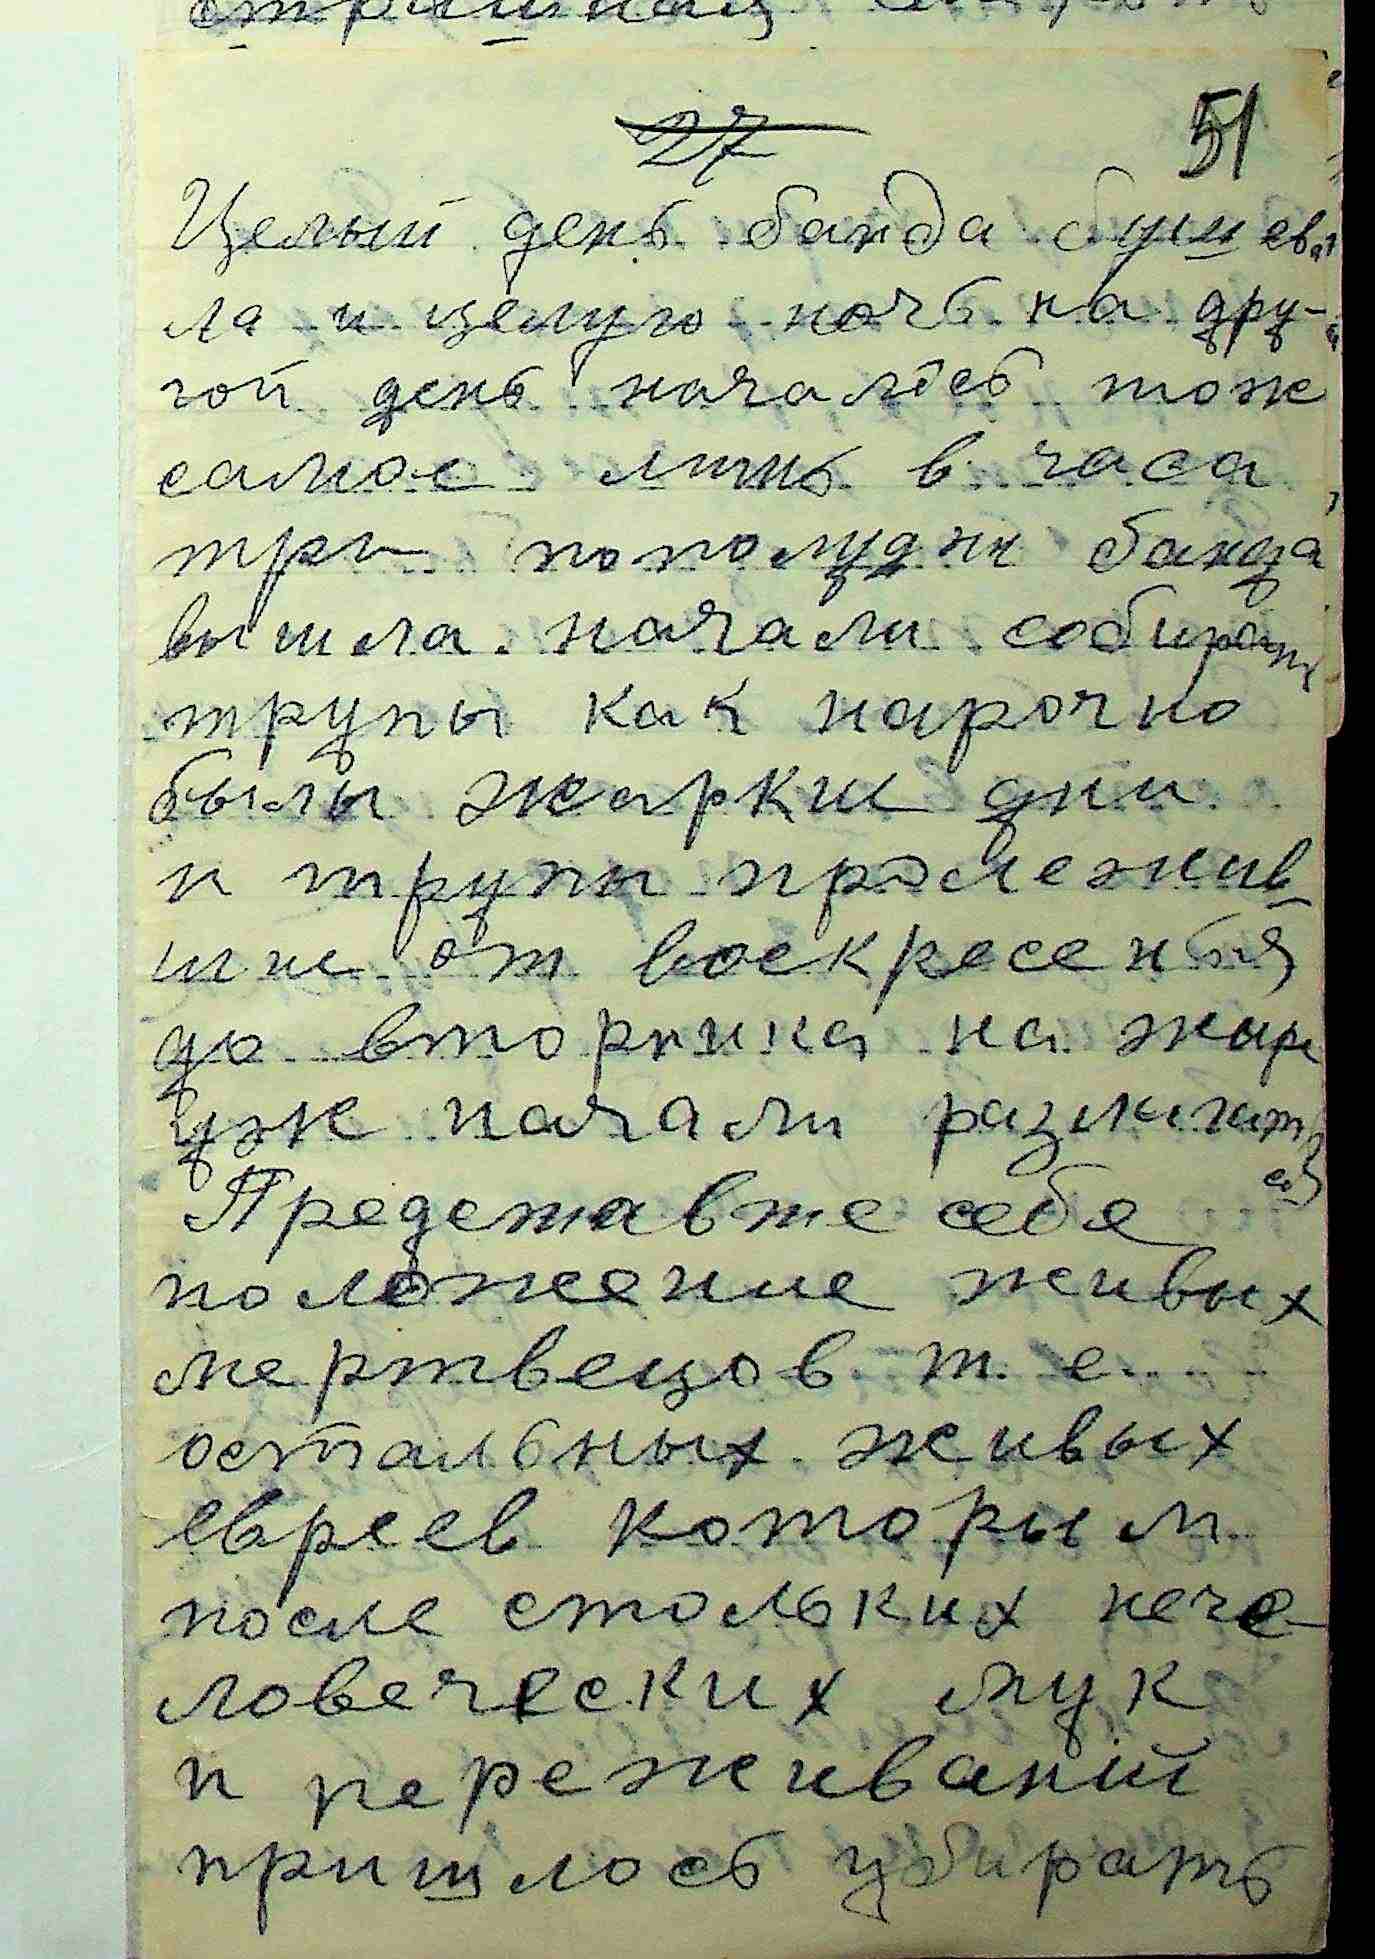 27 51
Целый день банда бушева
ла и целую ночь на дру-
гой день началось тож
самое лишь в часа
три пополудни банда
вышла начали собирать
трупы как нарочно
были жаркие дни
и трупы пролежив
шие от воскресенья
до вторника на жыре
уже начали разлагать
ся
Представте себе
положение живых
мертвецов т. е.
остальных живых
евреев которым
после стольких нече-
ловеческих мук
и переживаний
пришлось убирать